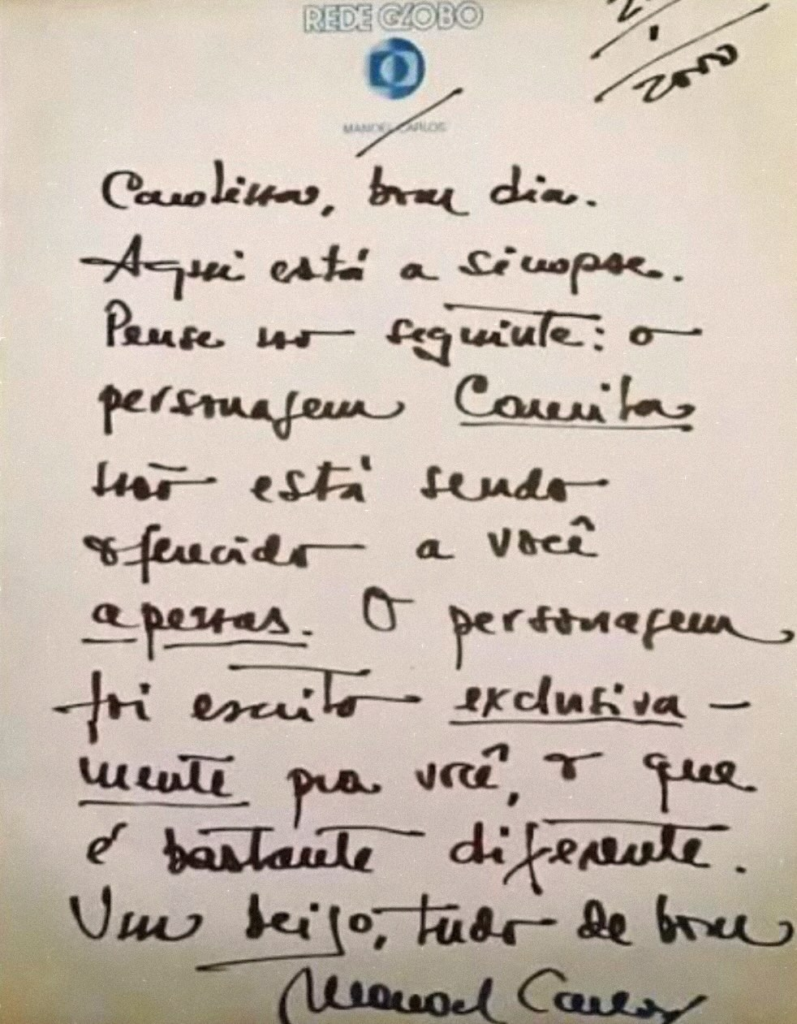 REDE GLOBO
MANOEL CARLOS
2000
Carolina, bom dia.
Aqui está a sinopse.
Pense no seguinte: o
personagem Camila
não está sendo
oferecido a você
apenas. O personagem
foi escrito exclusiva-
mente pra você, o que
é bastante diferente.
Um beijo, tudo de bom
Manoel Carlos